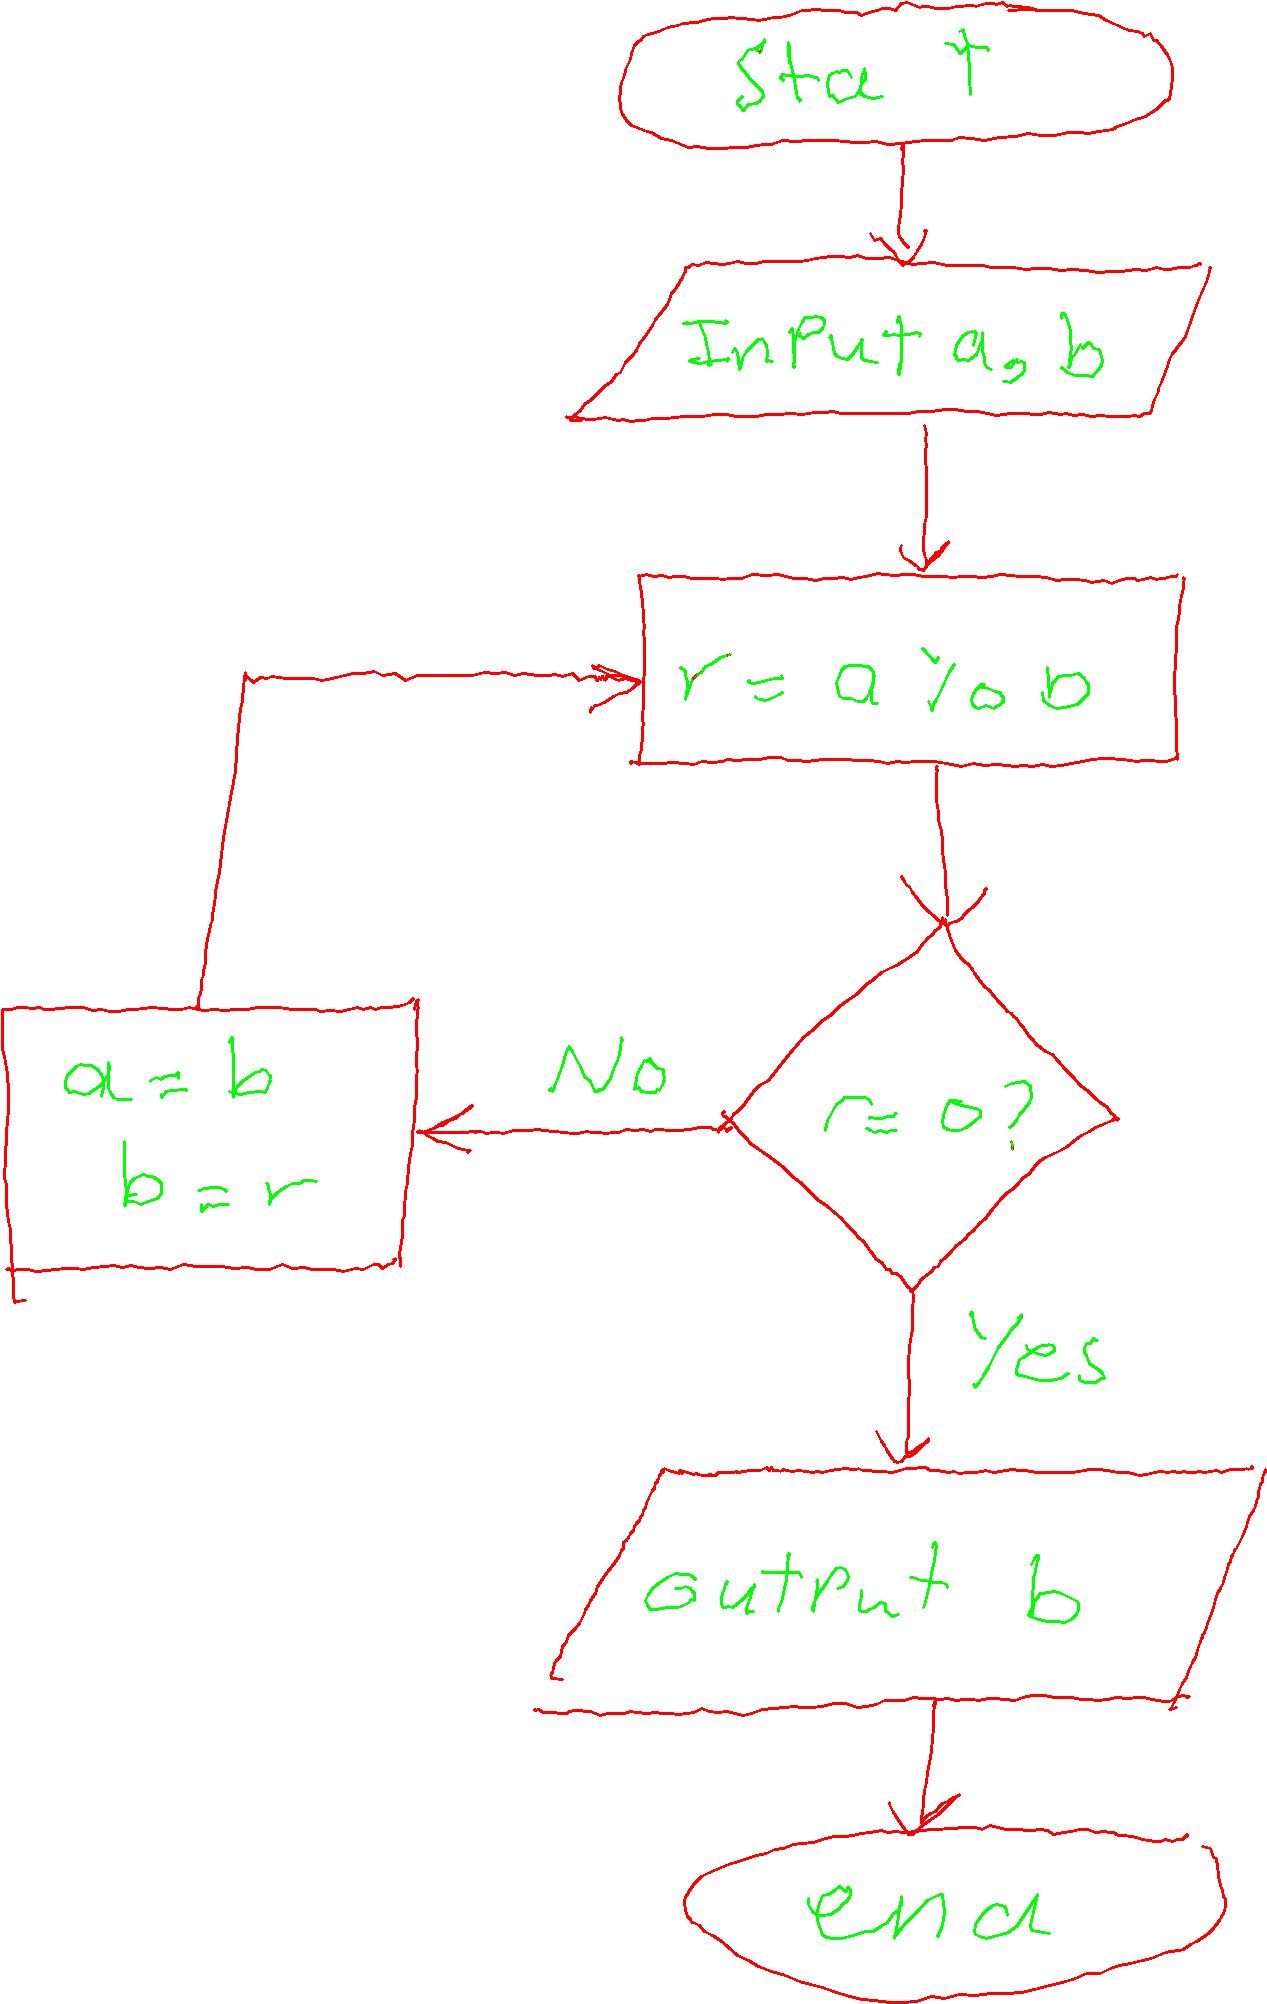 Sta t
Input a, b
r = a % b
No
r = 0?
a = b
b = r
Yes
output b
end